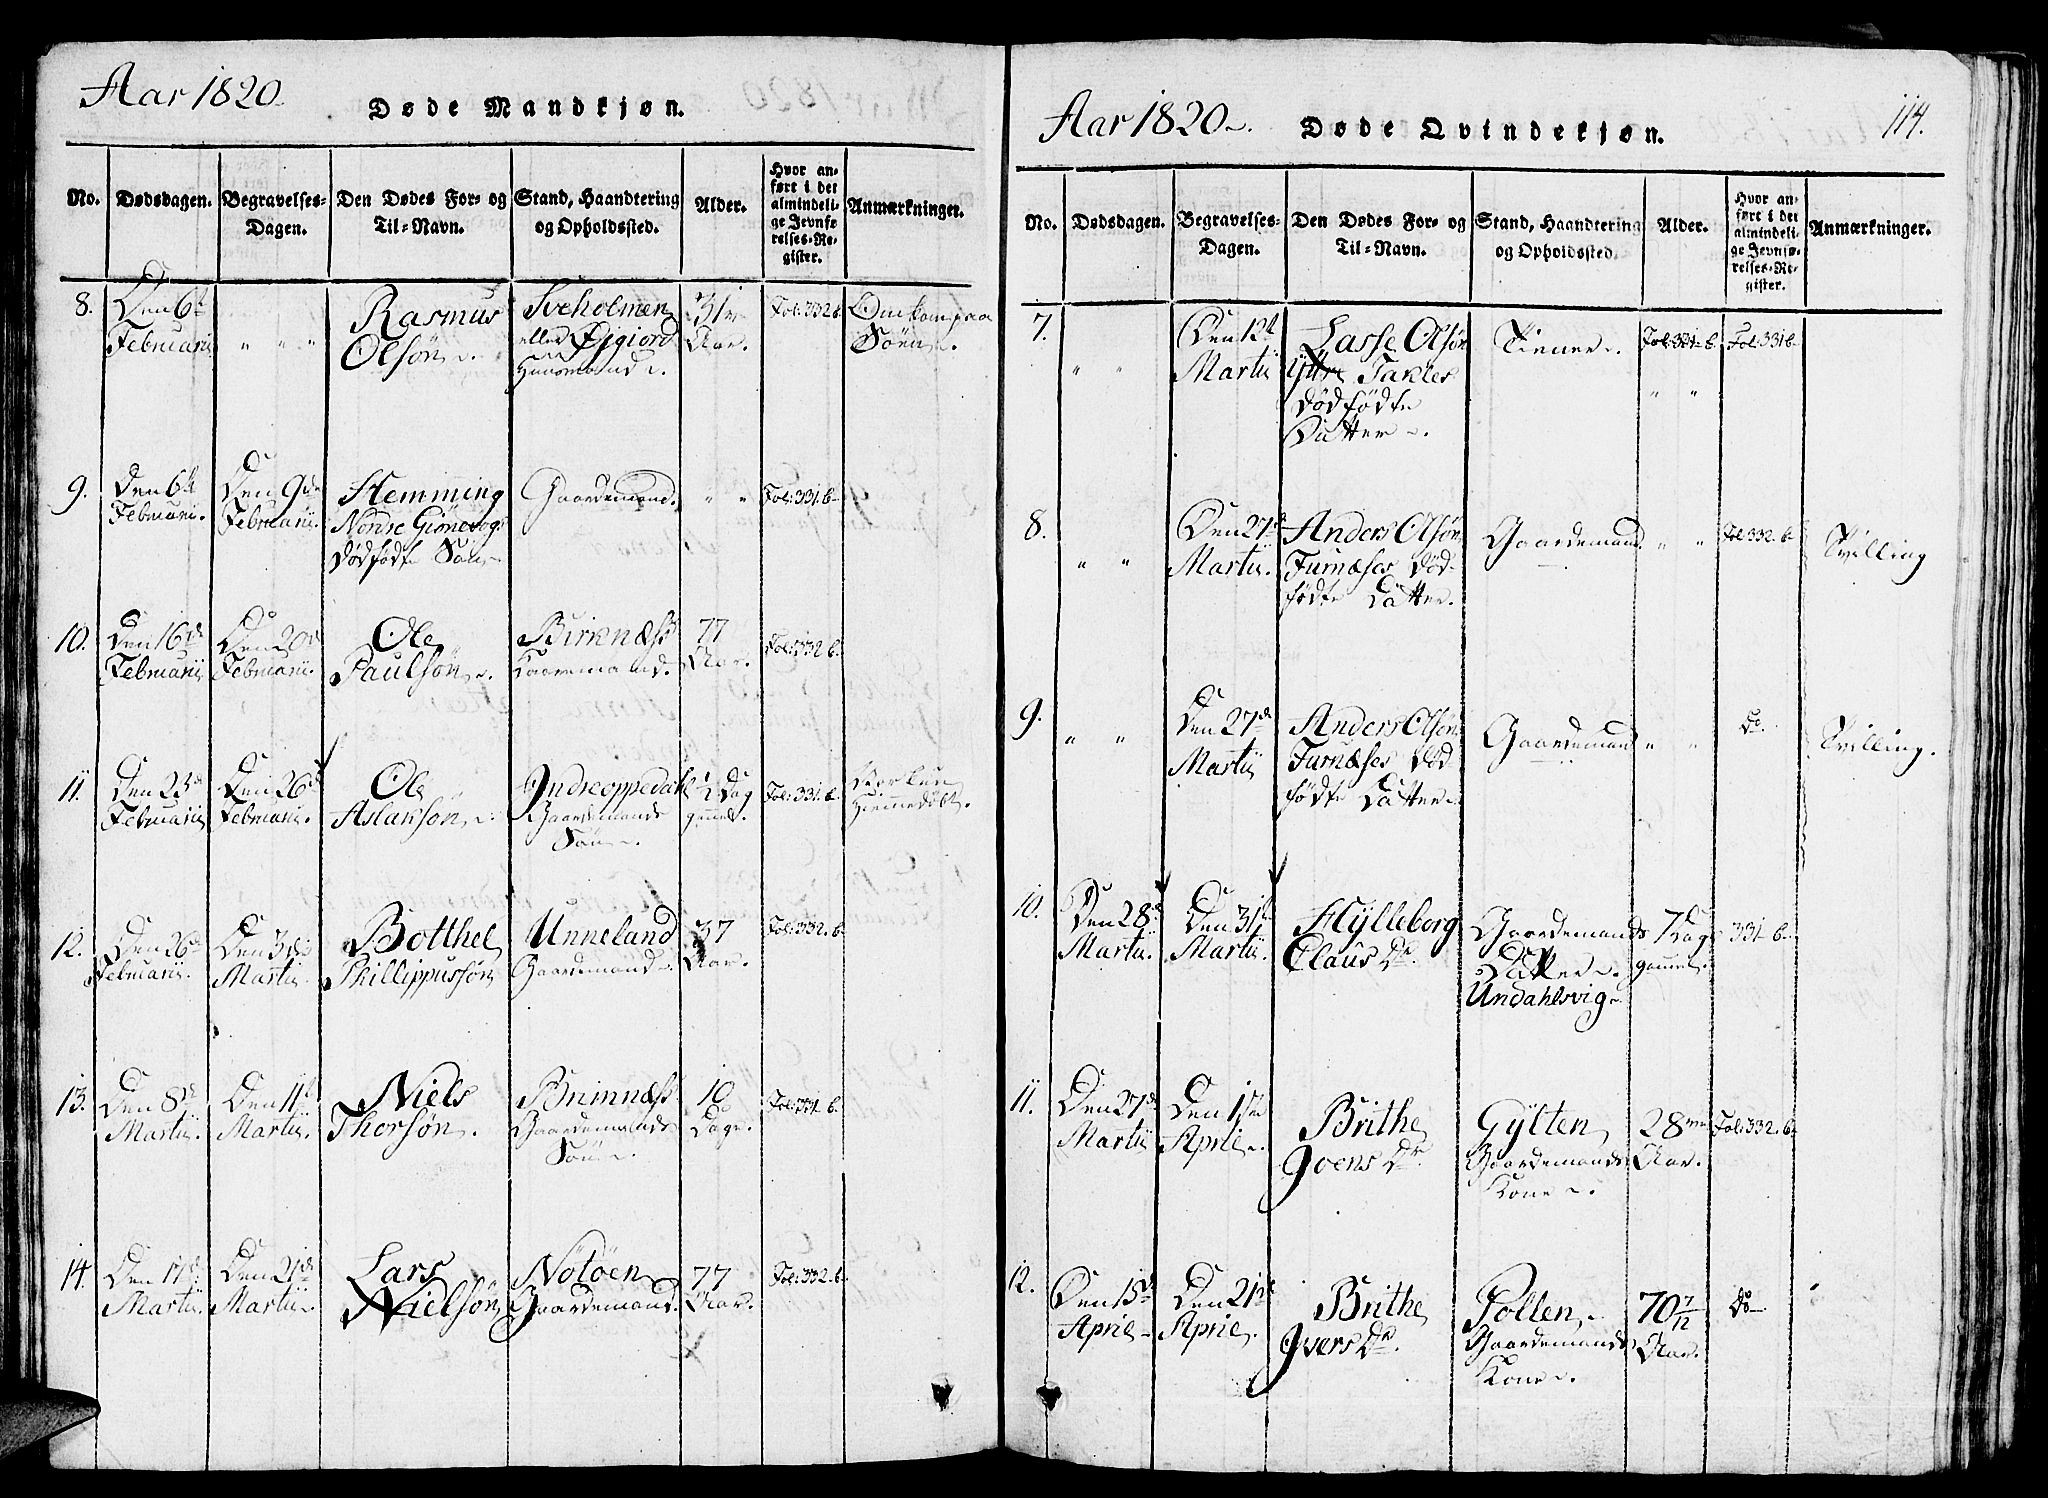 Aar 1820.
Døde Mandkjøn.
No.
Dødsdagen.
Begravelses-
Dagen.
Den Dødes For- og
Til-Navn.
Stand, Haandtering
og Opholdssted.
Alder.
Hvor an-
ført i det
almindeli-
ge Jevnfø-
relses-Re-
gister.
Anmærkninger.
8.
Den 6te
Februarii
" " "
Rasmus
Olsøn.
Sveholmen
eller
Huusmand.
31
Aar.
Fol: 332 b
Omkom paa
Søen.
9.
Den 6te
Februarii.
Den 9de
Februarii.
Hemming
Nordre Giønevogs
dødfødte Søn
Gaardemand.
" "
Fol: 331. b
10.
Den 16de
Februarii
Den 20de
Februarii.
Ole
Paulsøn.
Birknæss
Kaarmand.
77
Aar.
Fol: 332 b.
11.
Den 23de
Februarii
Den 26de
Februarii.
Ole
Aslaksøn.
Indreoppedahl
Gaardemands
Søn.
½ Dag
gammel.
Fol: 331. b.
Var kun
Hiemmedøbt.
12.
Den 26de
Februarii.
Den 3die
Martii.
Botthel
Phillippussøn
Unneland
Gaardemand.
37
Aar.
Fol: 332. b.
13.
Den 8de
Martii.
Den 11te
Martii.
Niels
Thorsøn.
Brimnæss
Gaardemands
Søn.
10
Dage.
Fol: 331. b.
14.
Den 17de
Martii.
Den 21de
Martii.
Lars
Nielsøn
Nötöen
Gaardemand.
77
Aar.
Fol: 332. b.
Aar 1820.
Døde Qvindekjøn.
114.
No.
Dødsdagen.
Begravelses-
Dagen.
Den Dødes For- og
Til-Navn.
Stand, Haandtering
og Opholdssted.
Alder.
Hvor an-
ført i det
almindeli-
ge Jevnfø-
relses-Re-
gister.
Anmærkninger.
7.
" "
Den 12te
Martii
Lasse Olsøn
Yttre Takles
dødfødte
Datter.
Tiener.
Fol: 331 b
" "
Fol: 331 b
8.
" "
Den 27de
Martii.
Anders Olsøn
Furnæses død-
fødte Datter.
Gaardemand.
" "
Fol: 332. b
Tvilling
9.
" "
Den 27de
Martii
Anders Olsøn
Furnæses død-
fødte Datter.
Gaardemand
" "
Do.
Tvilling.
10.
Den 28de
Martii.
Den 31te
Martii.
Hylleborg
Claus Dr.
Gaardemands
Datter.
Undahlsvig.
7 Dage
gammel.
331 b.
11.
Den 27de
Martii
Den 1ste
April.
Brithe
Joens Dr.
Gylten
Gaardemands
Kone.
28
Aar.
Fol: 332. b
12.
Den 15de
April
Den 21de
April.
Brithe
Ivers Dr.
Pollen.
Gaardemands
Kone.
70 7/12
Aar.
Do